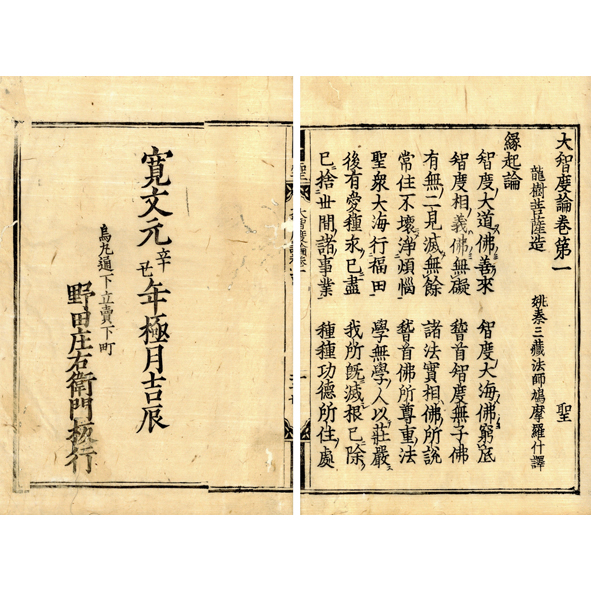 大智度論卷第一 聖
龍樹菩薩造 姚秦三藏法師鳩摩羅什譯
緣起論
智度大道佛善來 智度大海佛窮底
智度相義佛無礙 䭫首智度無子佛
有無二見滅無餘 諸法實相佛所說
常住不壞淨煩惱 䭫首佛所尊重法
聖衆大海行福田 學無學人以莊嚴
後有愛種求已盡 我所旣滅根已除
已捨世間諸事業 種種功德所住處
聖 大智度論卷一
寬文元辛丑年極月吉辰
烏丸通下立賣下町
野田庄右衛門板行